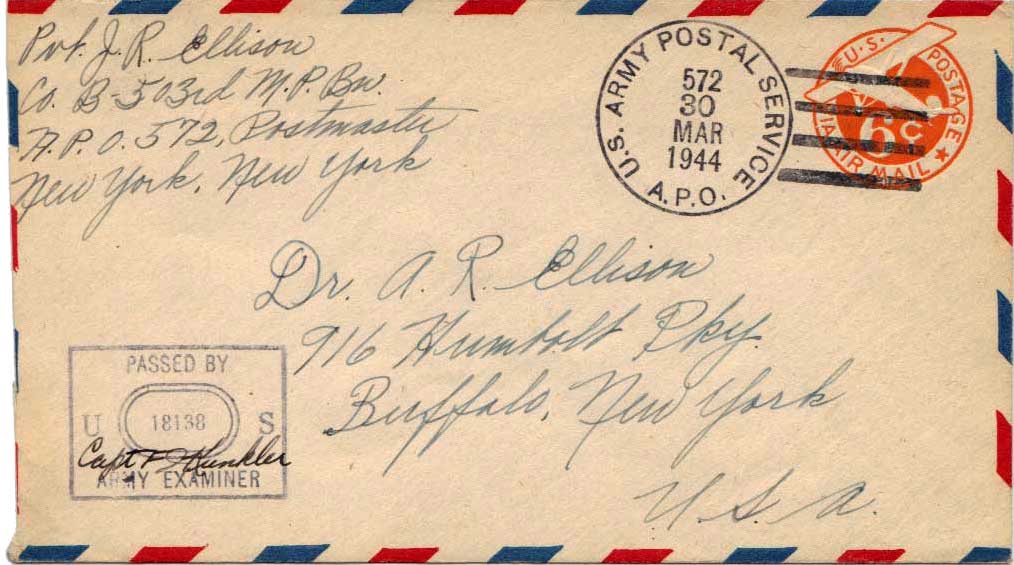 Pvt. J. R. Ellison
Co. B-503rd M.P. Bn.
A.P.O. 572, Postmaster
New York, New York
U.S. ARMY POSTAL SERVICE
572
30
MAR
1944
A.P.O.
U.S. POSTAGE
6c
VIA AIR MAIL
Dr. A. R. Ellison
916 Humbolt Pky.
Buffalo, New York
U.S.A.
PASSED BY
U 18138 S
Capt F Kunkler
ARMY EXAMINER